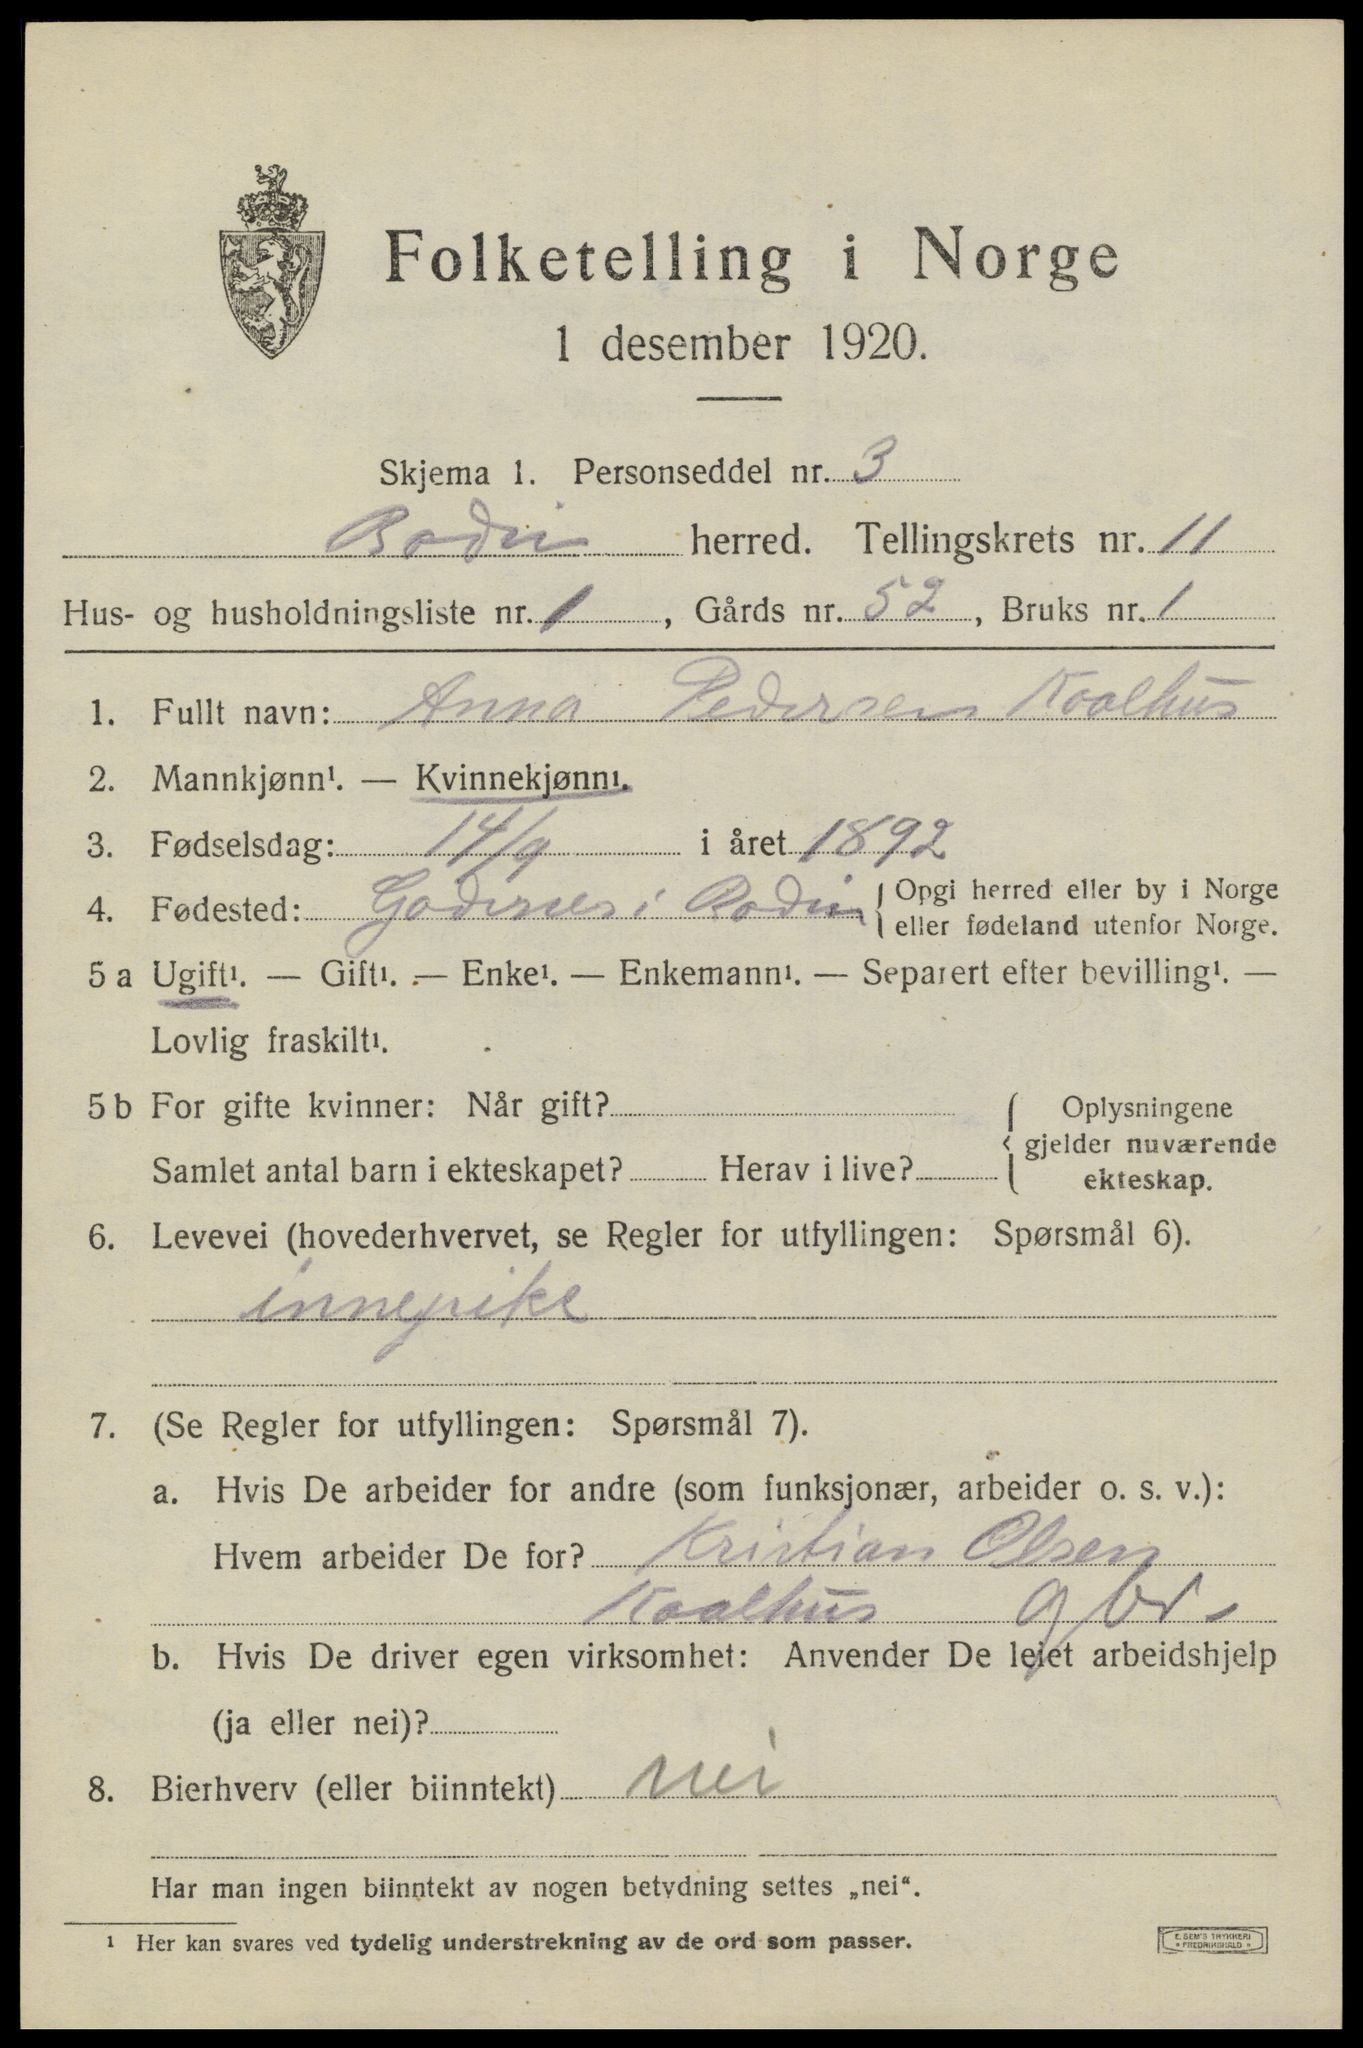 Folketelling i Norge
1 desember 1920.
Skjema 1. Personseddel nr. 3
Bodin herred. Tellingskrets nr. 11
Hus- og husholdningsliste nr. 1, Gårds nr. 52, Bruks nr. 1
1. Fullt navn: Anna Pedersen Kaalhus
2. Mannkjønn¹. — Kvinnekjønn¹.
3. Fødselsdag: 14/9 i året 1892
4. Fødested: Godønes i Bodin { Opgi herred eller by i Norge
eller fødeland utenfor Norge.
5 a Ugift¹. — Gift¹. — Enke¹. — Enkemann¹. — Separert efter bevilling¹. —
Lovlig fraskilt¹.
5 b For gifte kvinner: Når gift?
Samlet antal barn i ekteskapet? Herav i live?
Oplysningene
gjelder nuværende
ekteskap.
6. Levevei (hovederhvervet, se Regler for utfyllingen: Spørsmål 6).
innepike
7. (Se Regler for utfyllingen: Spørsmål 7).
a. Hvis De arbeider for andre (som funksjonær, arbeider o. s. v.):
Hvem arbeider De for? Kristian Olsen
Kaalhus gbr.
b. Hvis De driver egen virksomhet: Anvender De leiet arbeidshjelp
(ja eller nei)?
8. Bierhverv (eller biinntekt) nei
Har man ingen biinntekt av nogen betydning settes „nei“.
¹ Her kan svares ved tydelig understrekning av de ord som passer.
E. SEM'S TRYKKERI
* FREDRIKSHALD *